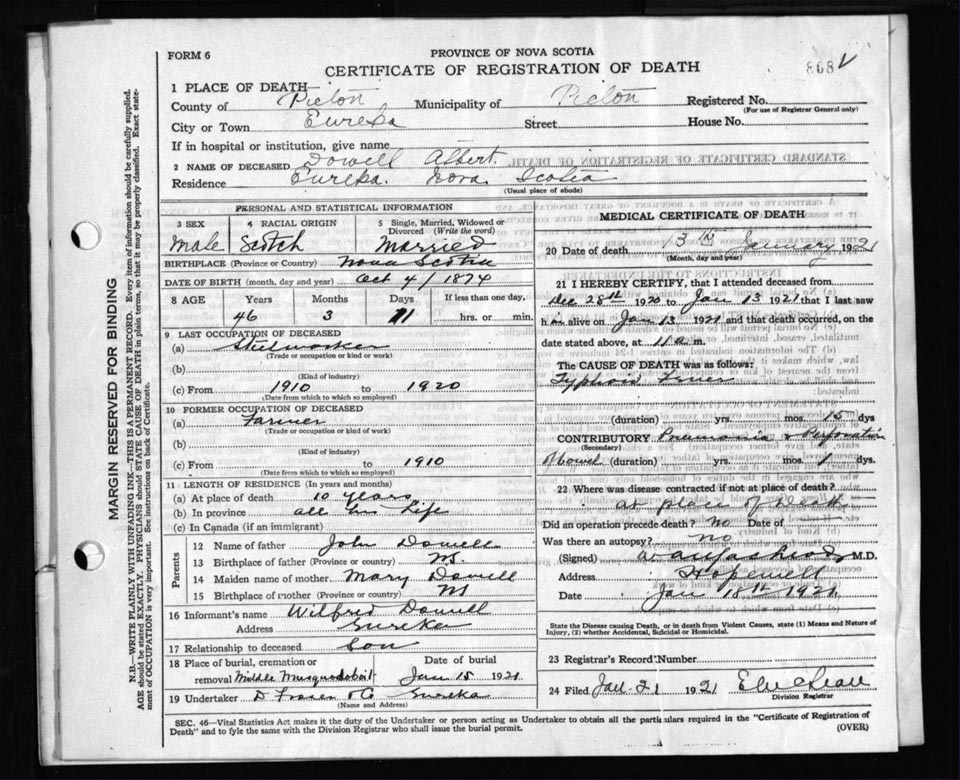 PROVINCE OF NOVA SCOTIA
FORM 6
CERTIFICATE OF REGISTRATION OF DEATH
1 PLACE OF DEATH—
County of Pictou Municipality of Pictou Registered No.
(For use of Registrar General only)
City or Town Eureka Street House No.
If in hospital or institution, give name
2 NAME OF DECEASED Dowell Albert.
Residence Eureka. Nova Scotia
(Usual place of abode)
PERSONAL AND STATISTICAL INFORMATION
3 SEX 4 RACIAL ORIGIN 5 Single, Married, Widowed or Divorced (Write the word)
Male Scotch Married
BIRTHPLACE (Province or Country) Nova Scotia
DATE OF BIRTH (month, day and year) Oct 4/1874
8 AGE Years Months Days If less than one day,
46 3 11 hrs. or min.
9 LAST OCCUPATION OF DECEASED
(a) Steelworker
(Trade or occupation or kind of work)
(b)
(Kind of industry)
(c) From 1910 to 1920
(Date from which to which so employed)
10 FORMER OCCUPATION OF DECEASED
(a) Farmer
(Trade or occupation or kind of work)
(b)
(Kind of industry)
(c) From to 1910
(Date from which to which so employed)
11 LENGTH OF RESIDENCE (In years and months)
(a) At place of death 10 years
(b) In province all his Life
(c) In Canada (if an immigrant)
Parents
12 Name of father John Dowell
13 Birthplace of father (Province or country) NS.
14 Maiden name of mother Mary Dowell
15 Birthplace of mother (Province or country)
16 Informant's name Wilfred Dowell
Address Eureka
17 Relationship to deceased Son
18 Place of burial, cremation or Date of burial
removal Middle Musquodoboit Jan 15 1921
19 Undertaker D Fraser & Co Eureka
(Name and Address)
MEDICAL CERTIFICATE OF DEATH
20 Date of death 13th January 1921
(Month, day and year)
21 I HEREBY CERTIFY, that I attended deceased from
Dec 28th 1920 to Jan 13 1921 that I last saw
him alive on Jan 13 1921 and that death occurred, on the
date stated above, at 11 a. m.
The CAUSE OF DEATH was as follows:
Typhoid Fever
(duration) yrs. mos. 15 dys
CONTRIBUTORY Pneumonia & Perforation
(Secondary)
Bowel (duration) yrs. mos. 1 dys.
22 Where was disease contracted if not at place of death?
at place of death
Did an operation precede death? No Date of
Was there an autopsy? no
(Signed) M.D.
Address Hopewell
Date Jan 18th 1921
State the Disease causing Death, or in death from Violent Causes, state (1) Means and Nature of
Injury, (2) whether Accidental, Suicidal or Homicidal.
23 Registrar's Record Number
24 Filed Jan 21 1921
Division Registrar
SEC. 46—Vital Statistics Act makes it the duty of the Undertaker or person acting as Undertaker to obtain all the particulars required in the "Certificate of Registration of
Death" and to fyle the same with the Division Registrar who shall issue the burial permit. (OVER)
MARGIN RESERVED FOR BINDING
N.B.—WRITE PLAINLY WITH UNFADING INK—THIS IS A PERMANENT RECORD. Every item of information should be carefully supplied.
AGE should be stated EXACTLY. PHYSICIANS should STATE CAUSE OF DEATH in plain terms, so that it may be properly classified. Exact statement of OCCUPATION is very important. See instructions on back of Certificate.